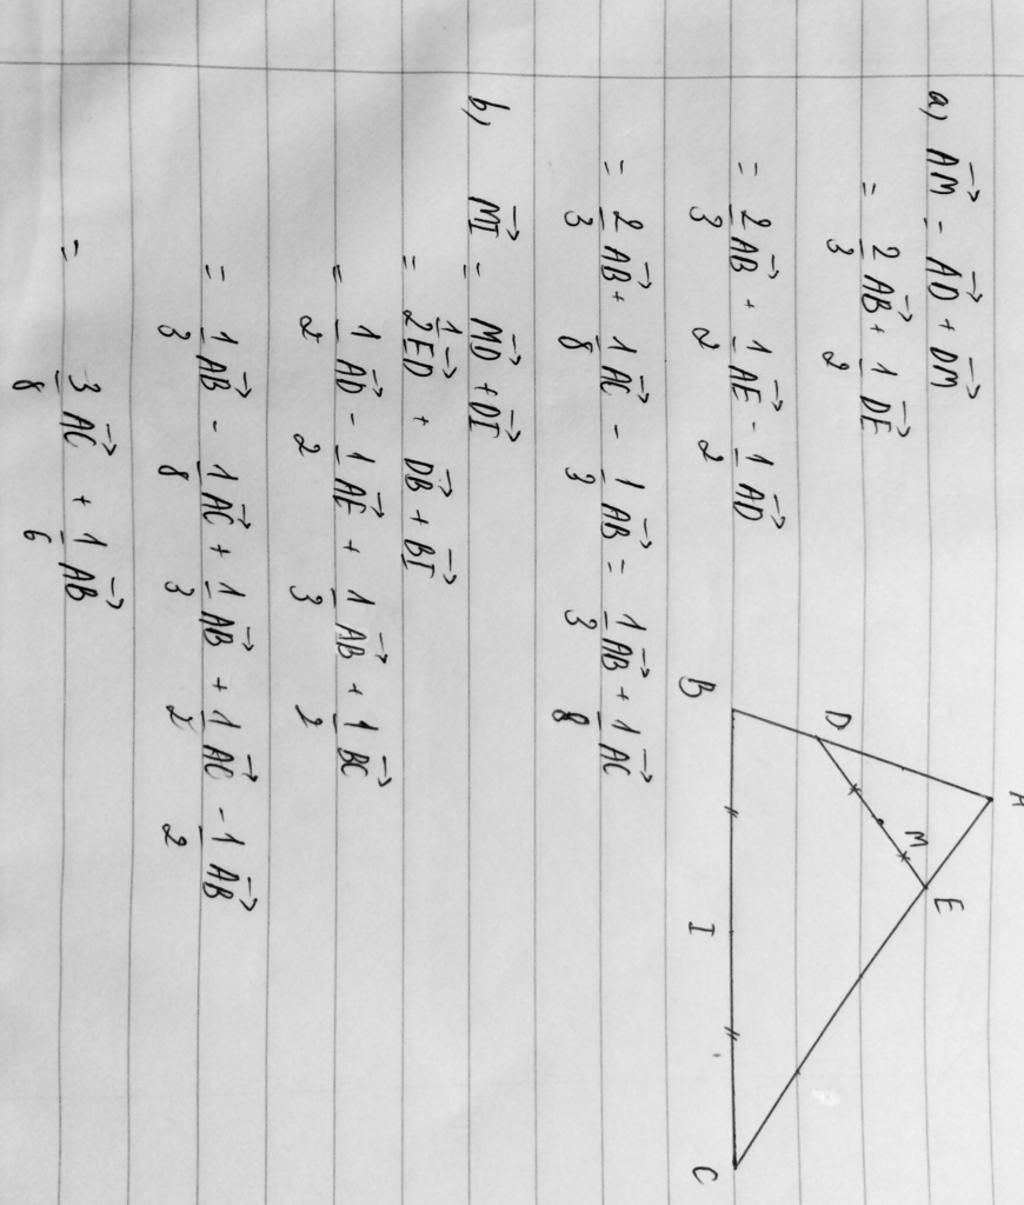 a) $\overrightarrow{AM} = \overrightarrow{AD} + \overrightarrow{DM}$
$= \frac{2}{3}\overrightarrow{AB} + \frac{1}{2}\overrightarrow{DE}$
$= \frac{2}{3}\overrightarrow{AB} + \frac{1}{2}\overrightarrow{AE} - \frac{1}{2}\overrightarrow{AD}$
$= \frac{2}{3}\overrightarrow{AB} + \frac{1}{8}\overrightarrow{AC} - \frac{1}{3}\overrightarrow{AB} = \frac{1}{3}\overrightarrow{AB} + \frac{1}{8}\overrightarrow{AC}$
A
E
M
D
B
I
C
b, $\overrightarrow{MI} = \overrightarrow{MD} + \overrightarrow{DI}$
$= \frac{1}{2}\overrightarrow{ED} + \overrightarrow{DB} + \overrightarrow{BI}$
$= \frac{1}{2}\overrightarrow{AD} - \frac{1}{2}\overrightarrow{AE} + \frac{1}{3}\overrightarrow{AB} + \frac{1}{2}\overrightarrow{BC}$
$= \frac{1}{3}\overrightarrow{AB} - \frac{1}{8}\overrightarrow{AC} + \frac{1}{3}\overrightarrow{AB} + \frac{1}{2}\overrightarrow{AC} - \frac{1}{2}\overrightarrow{AB}$
$= \frac{3}{8}\overrightarrow{AC} + \frac{1}{6}\overrightarrow{AB}$